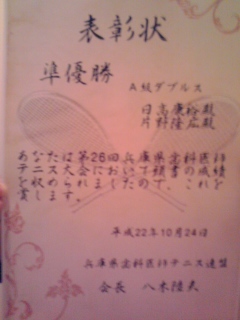 表彰状
準優勝
A級ダブルス
日高康裕殿
片村隆広殿
あなたは第26回兵庫県歯科医師
テニス大会において頭書の成績
を収められましたので、これを
賞します。
平成22年10月24日
兵庫県歯科医師テニス連盟
会長 八木陸夫